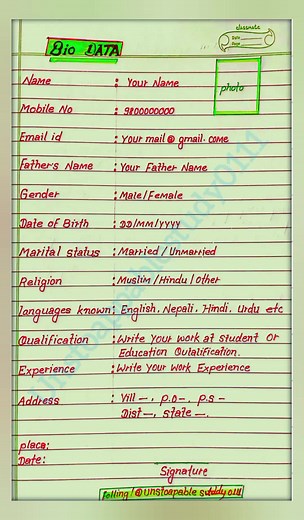 classmate
Date
Page
Bio DATA
photo
Name : Your Name
Mobile No : 9800000000
Email id : Your mail@gmail.come
Father's Name : Your Father Name
Gender : Male/Female
Date of Birth : DD/MM/YYYY
Marital status : Married/Unmarried
Religion : Muslim/Hindu/Other
languages known : English, Nepali, Hindi, Urdu etc
Qualification : Write Your work at student Or
Education Qulalification.
Experience : Write Your Work Experience
Address : Vill –, P.O–, P.S–
Dist –, state –.
place:
Date:
Signature
felling/@unstoapable suddy0111